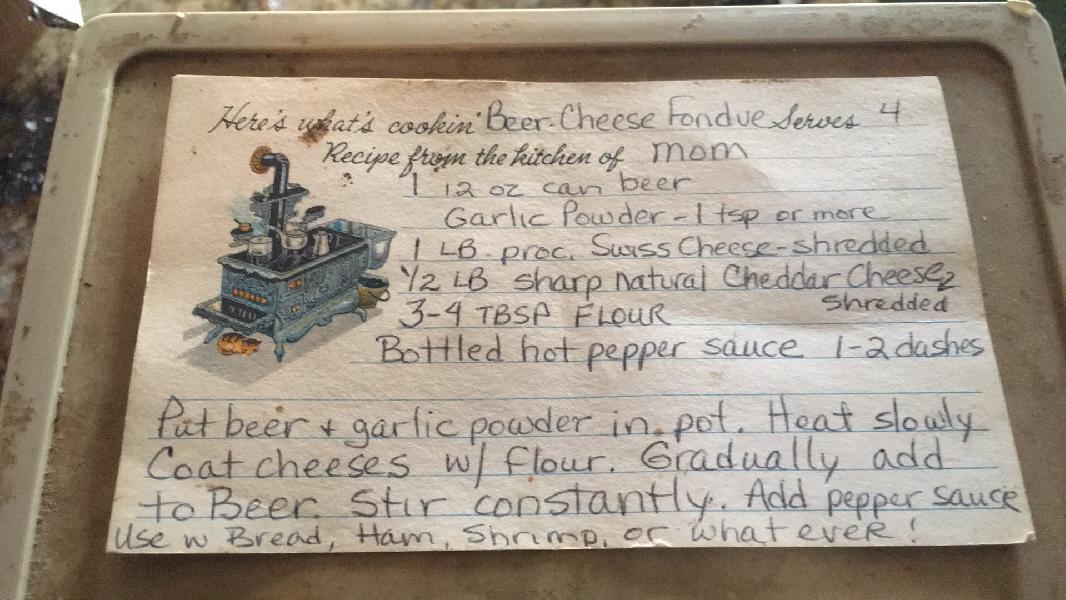 Here's what's cookin' Beer-Cheese Fondue Serves 4
Recipe from the kitchen of mom
1 12 oz can beer
Garlic Powder - 1 tsp or more
1 LB. proc. Swiss Cheese - shredded
1/2 LB sharp natural Cheddar Cheese
shredded
3-4 TBSP FLOUR
Bottled hot pepper sauce 1-2 dashes
Put beer + garlic powder in pot. Heat slowly
Coat cheeses w/ flour. Gradually add
to Beer. Stir constantly. Add pepper sauce
Use w Bread, Ham, Shrimp, or what ever!